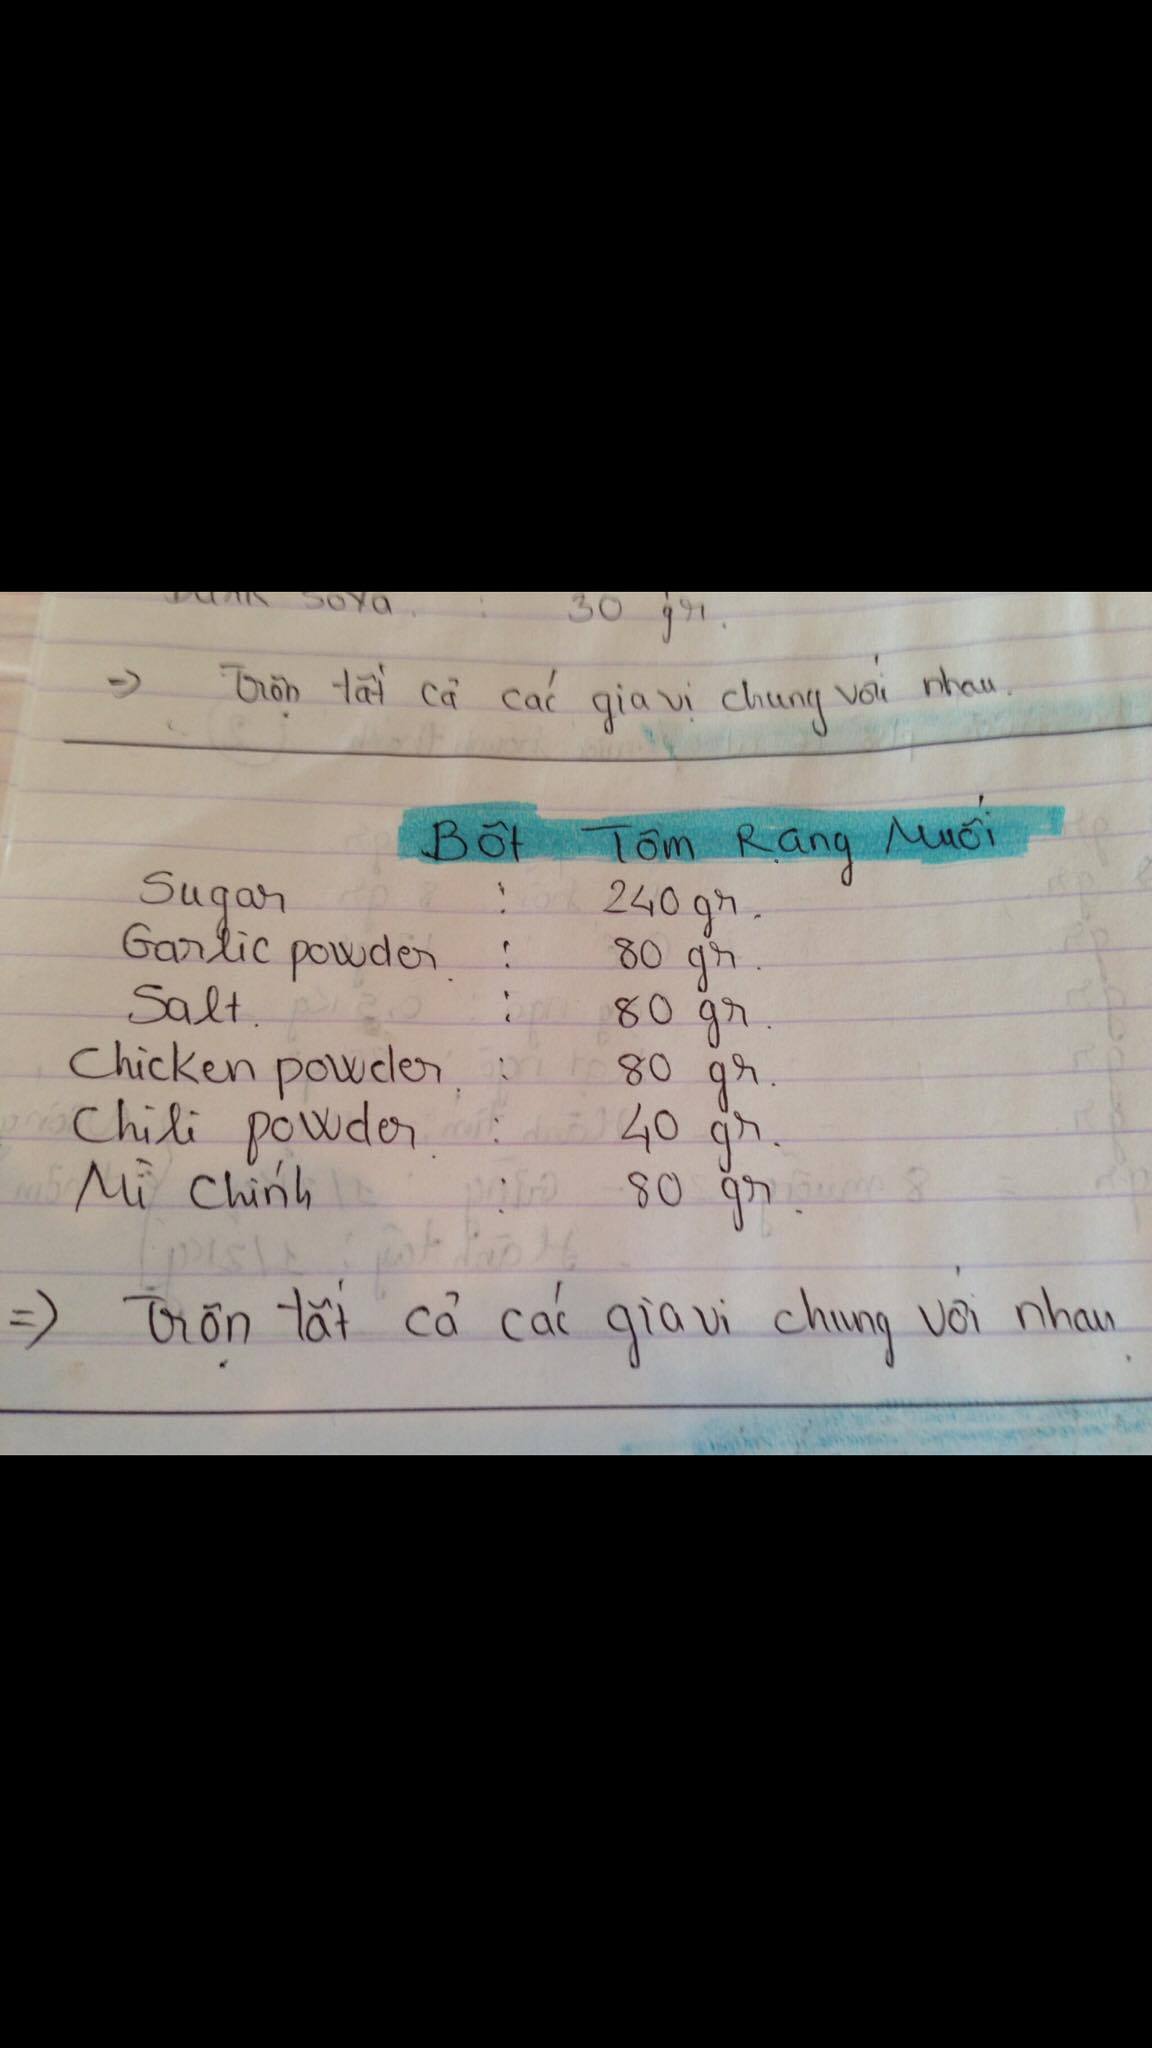 Soya. : 30 gr.
=> Trộn tất cả các gia vị chung với nhau.
Bột Tôm Rang Muối
Sugar : 240 gr.
Garlic powder. : 80 gr.
Salt. : 80 gr.
Chicken powder. : 80 gr.
Chili powder. : 40 gr.
Mì Chính : 80 gr.
=> Trộn tất cả các gia vi chung với nhau.